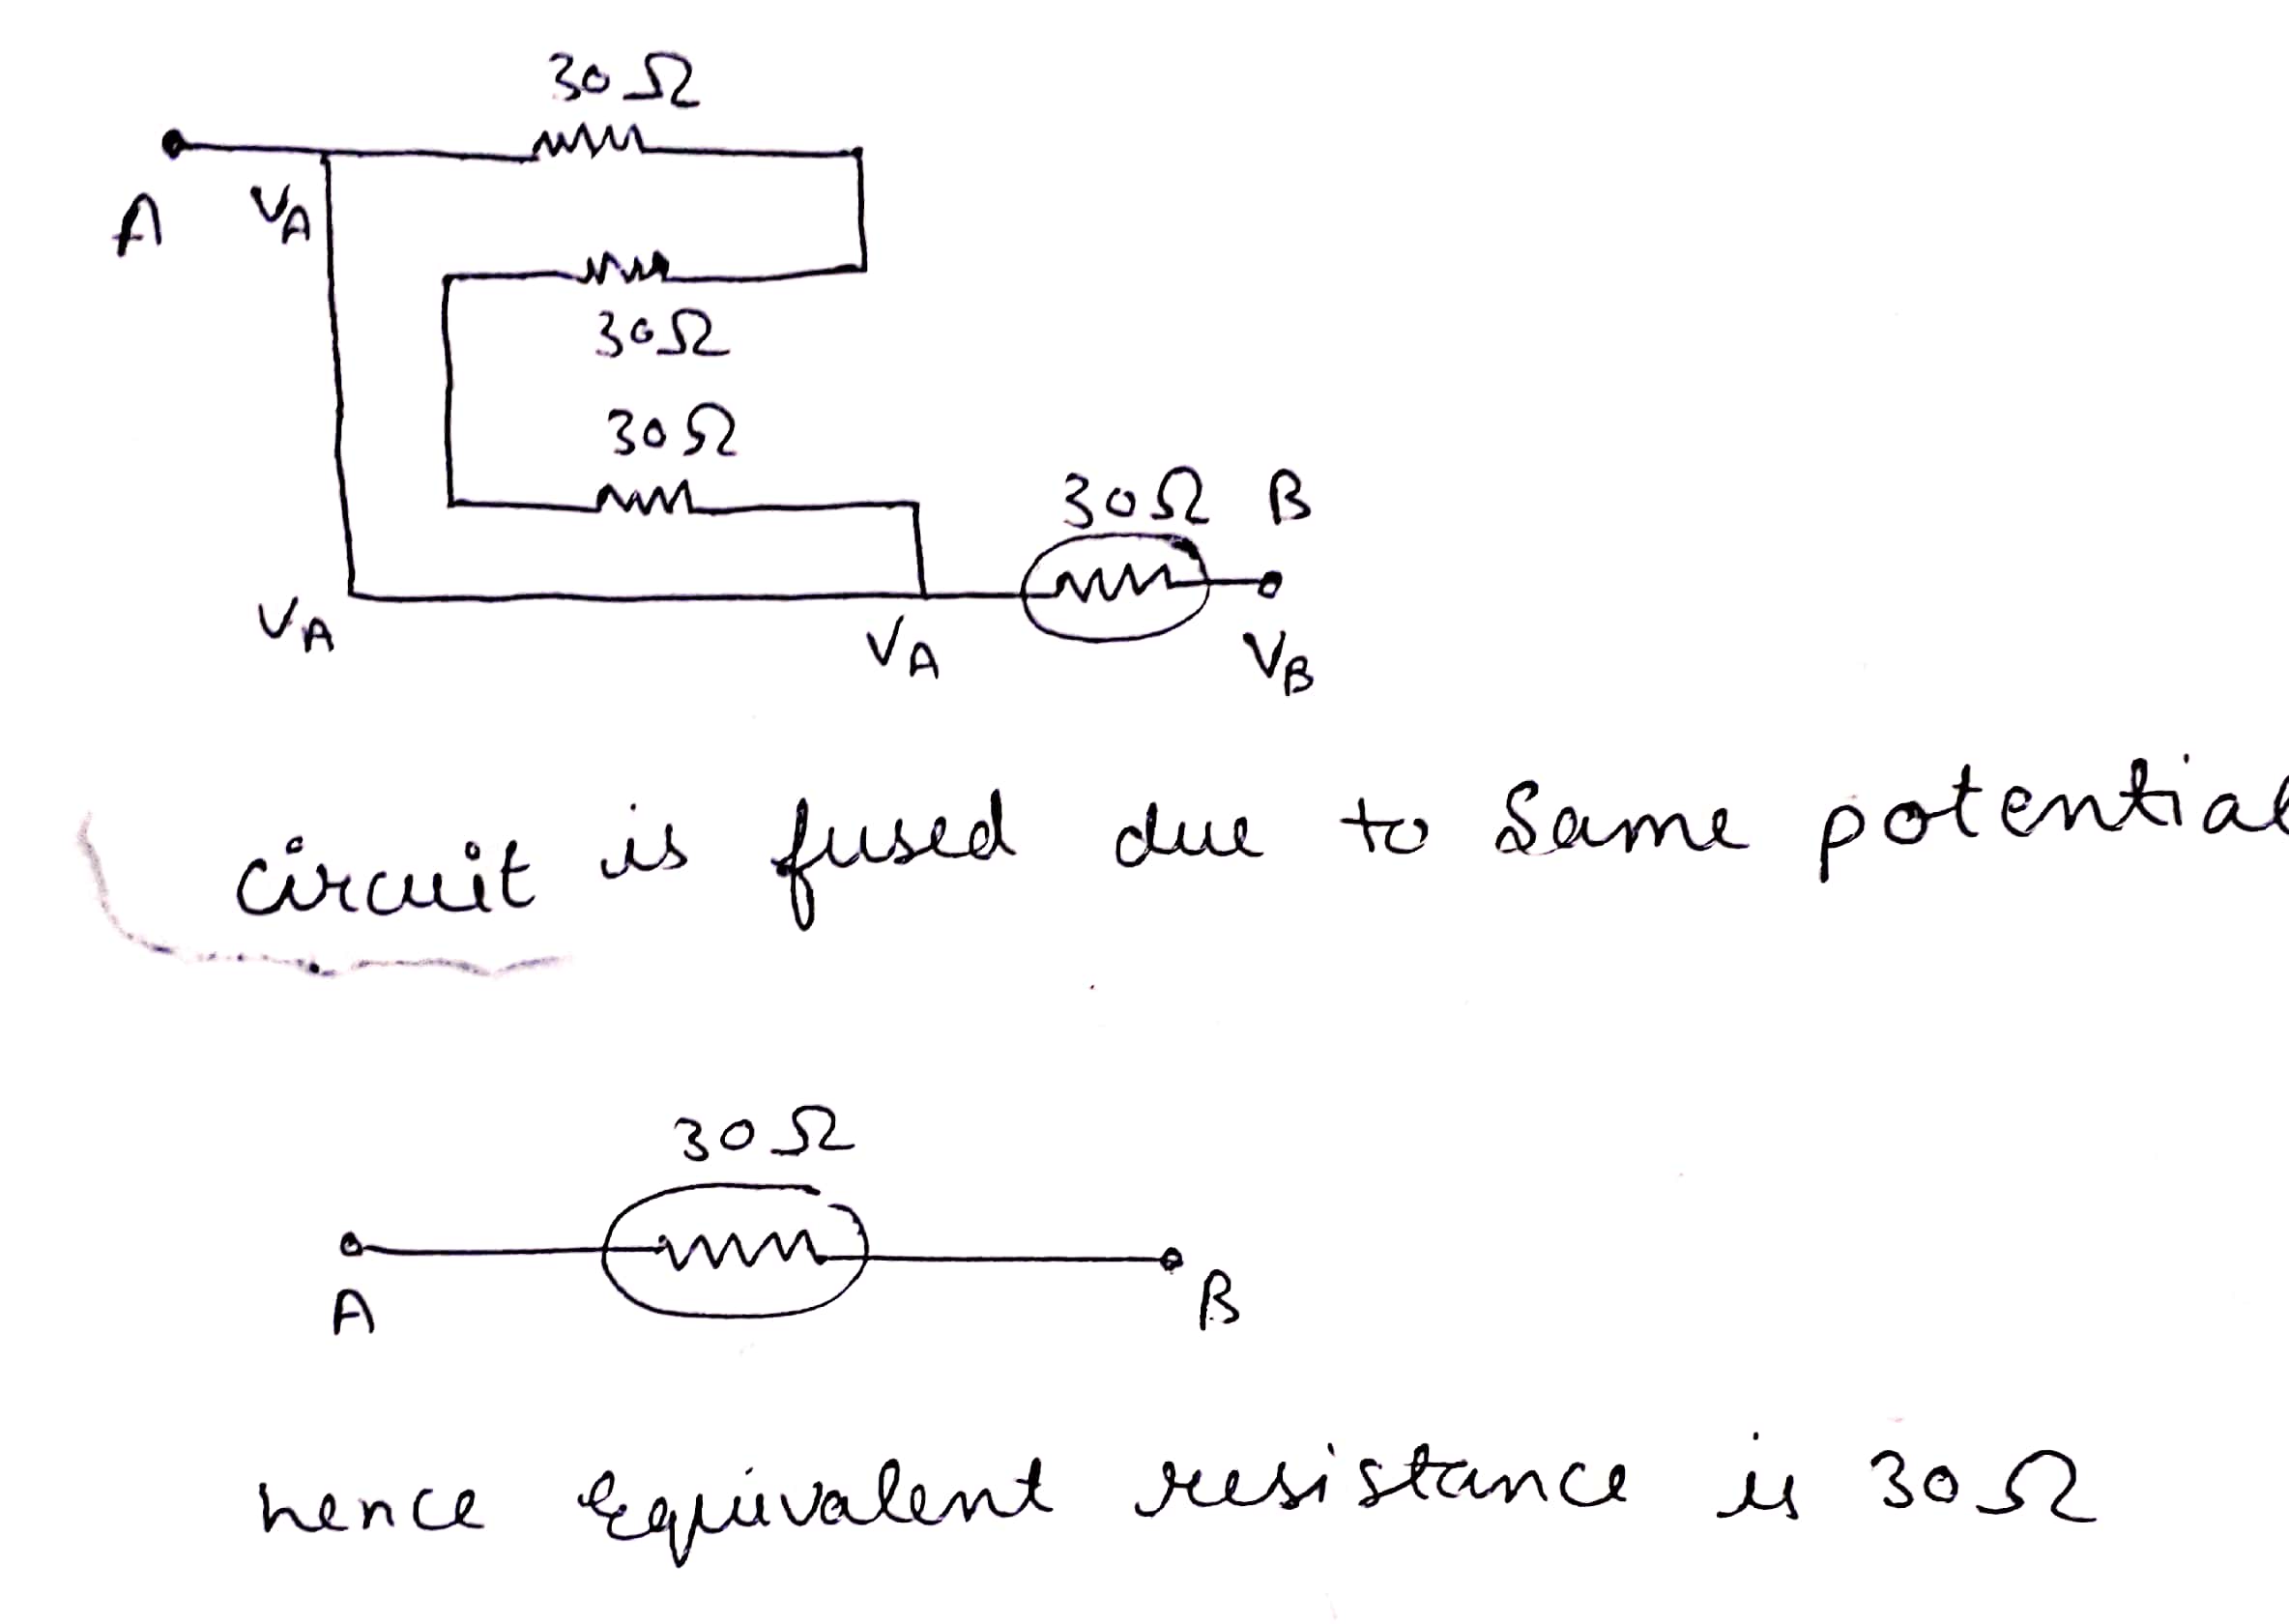 30Ω
A
VA
30Ω
30Ω
30Ω B
VA
VA
VB
circuit is fused due to same potential
30Ω
A
B
hence equivalent resistance is 30Ω